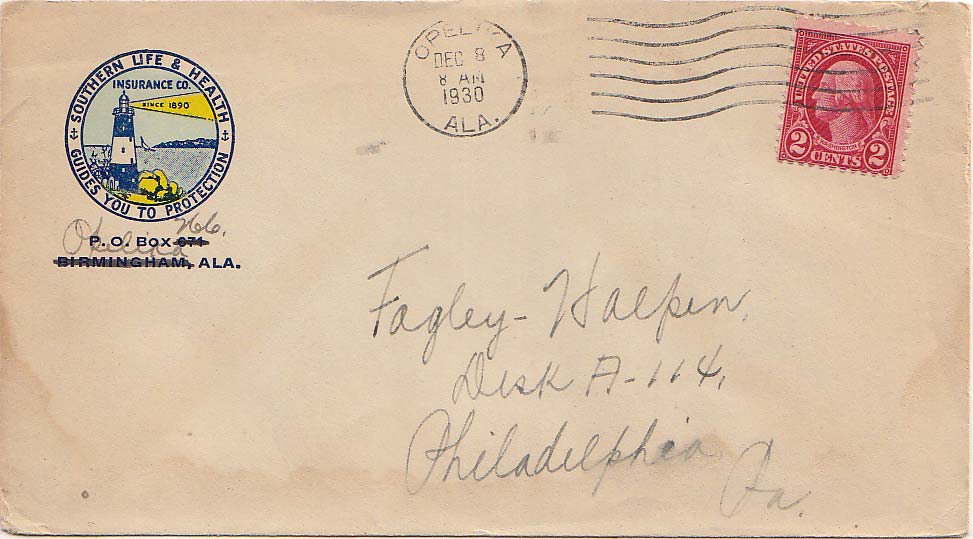 SOUTHERN LIFE & HEALTH
INSURANCE CO.
SINCE 1890
GUIDES YOU TO PROTECTION
P. O. BOX 671 766.
Opelika
BIRMINGHAM, ALA.
OPELIKA
DEC 8
8 AM
1930
ALA.
UNITED STATES POSTAGE
WASHINGTON
2 CENTS 2
Fagley-Halpin,
Desk A-114,
Philadelphia
Pa.